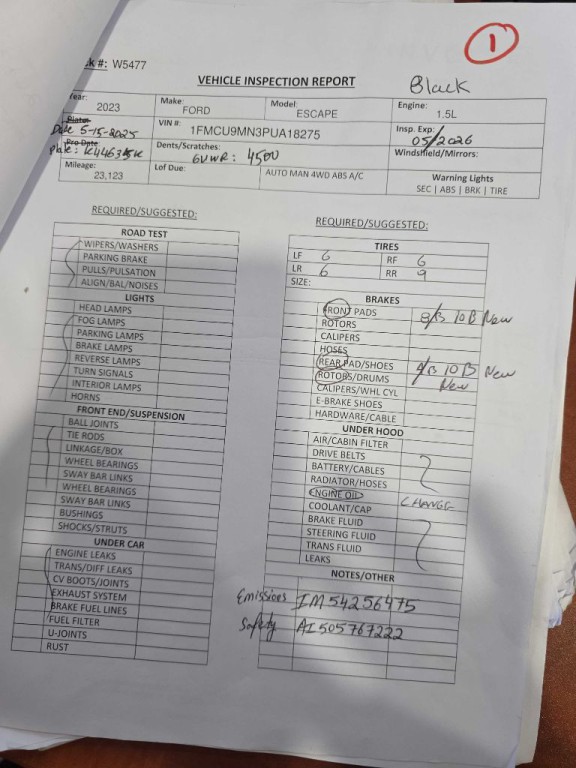 1
k #: W5477
VEHICLE INSPECTION REPORT
Black
Year: 2023
Make: FORD
Model: ESCAPE
Engine: 1.5L
Plate:
Date 5-15-2025
VIN #: 1FMCU9MN3PUA18275
Insp. Exp: 05/2026
Pro Date
Plate:
Dents/Scratches:
GVWR: 4500
Windshield/Mirrors:
Mileage: 23,123
Lof Due:
AUTO MAN 4WD ABS A/C
Warning Lights
SEC | ABS | BRK | TIRE
REQUIRED/SUGGESTED:
ROAD TEST
WIPERS/WASHERS
PARKING BRAKE
PULLS/PULSATION
ALIGN/BAL/NOISES
LIGHTS
HEAD LAMPS
FOG LAMPS
PARKING LAMPS
BRAKE LAMPS
REVERSE LAMPS
TURN SIGNALS
INTERIOR LAMPS
HORNS
FRONT END/SUSPENSION
BALL JOINTS
TIE RODS
LINKAGE/BOX
WHEEL BEARINGS
SWAY BAR LINKS
WHEEL BEARINGS
SWAY BAR LINKS
BUSHINGS
SHOCKS/STRUTS
UNDER CAR
ENGINE LEAKS
TRANS/DIFF LEAKS
CV BOOTS/JOINTS
EXHAUST SYSTEM
BRAKE FUEL LINES
FUEL FILTER
U-JOINTS
RUST
REQUIRED/SUGGESTED:
TIRES
LF 6 RF 6
LR 6 RR 9
SIZE:
BRAKES
FRONT PADS 10 B New
ROTORS
CALIPERS
HOSES
REAR PAD/SHOES 10 B New
ROTORS/DRUMS New
CALIPERS/WHL CYL
E-BRAKE SHOES
HARDWARE/CABLE
UNDER HOOD
AIR/CABIN FILTER
DRIVE BELTS
BATTERY/CABLES
RADIATOR/HOSES
ENGINE OIL CHANGE
COOLANT/CAP
BRAKE FLUID
STEERING FLUID
TRANS FLUID
LEAKS
NOTES/OTHER
Emissions IM54256475
Safety AI505767222